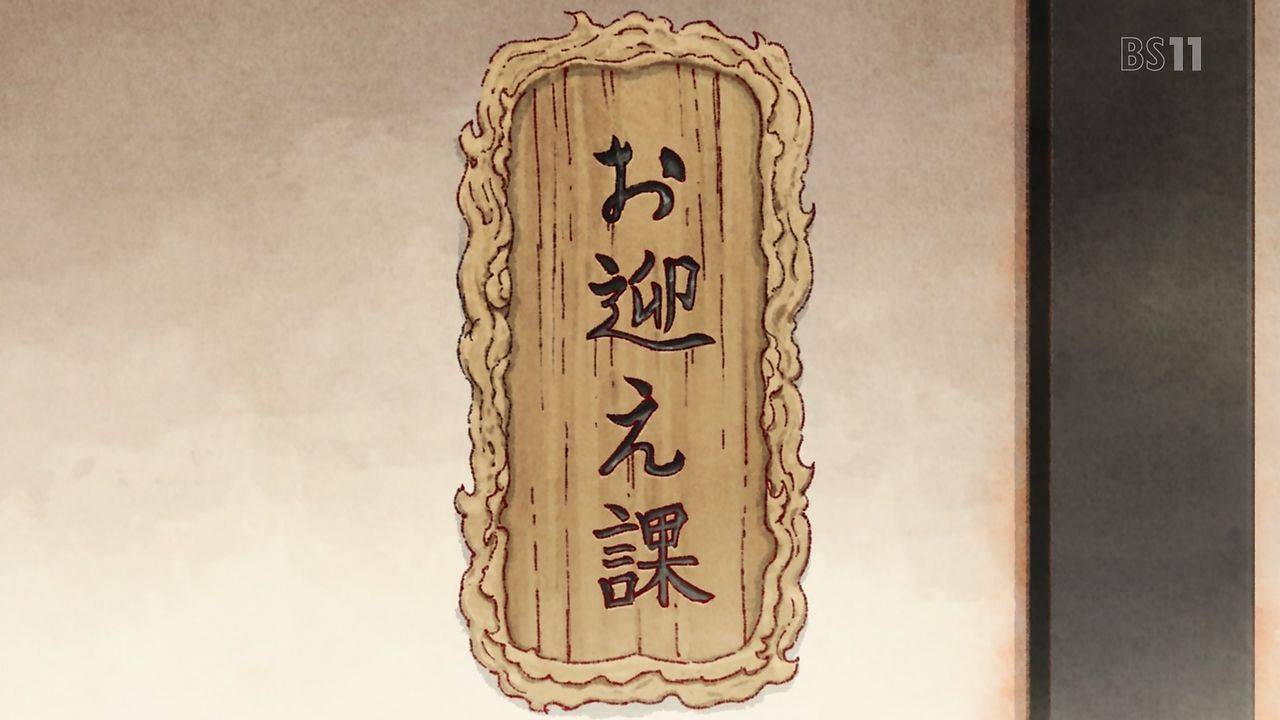 お迎え課
BS11